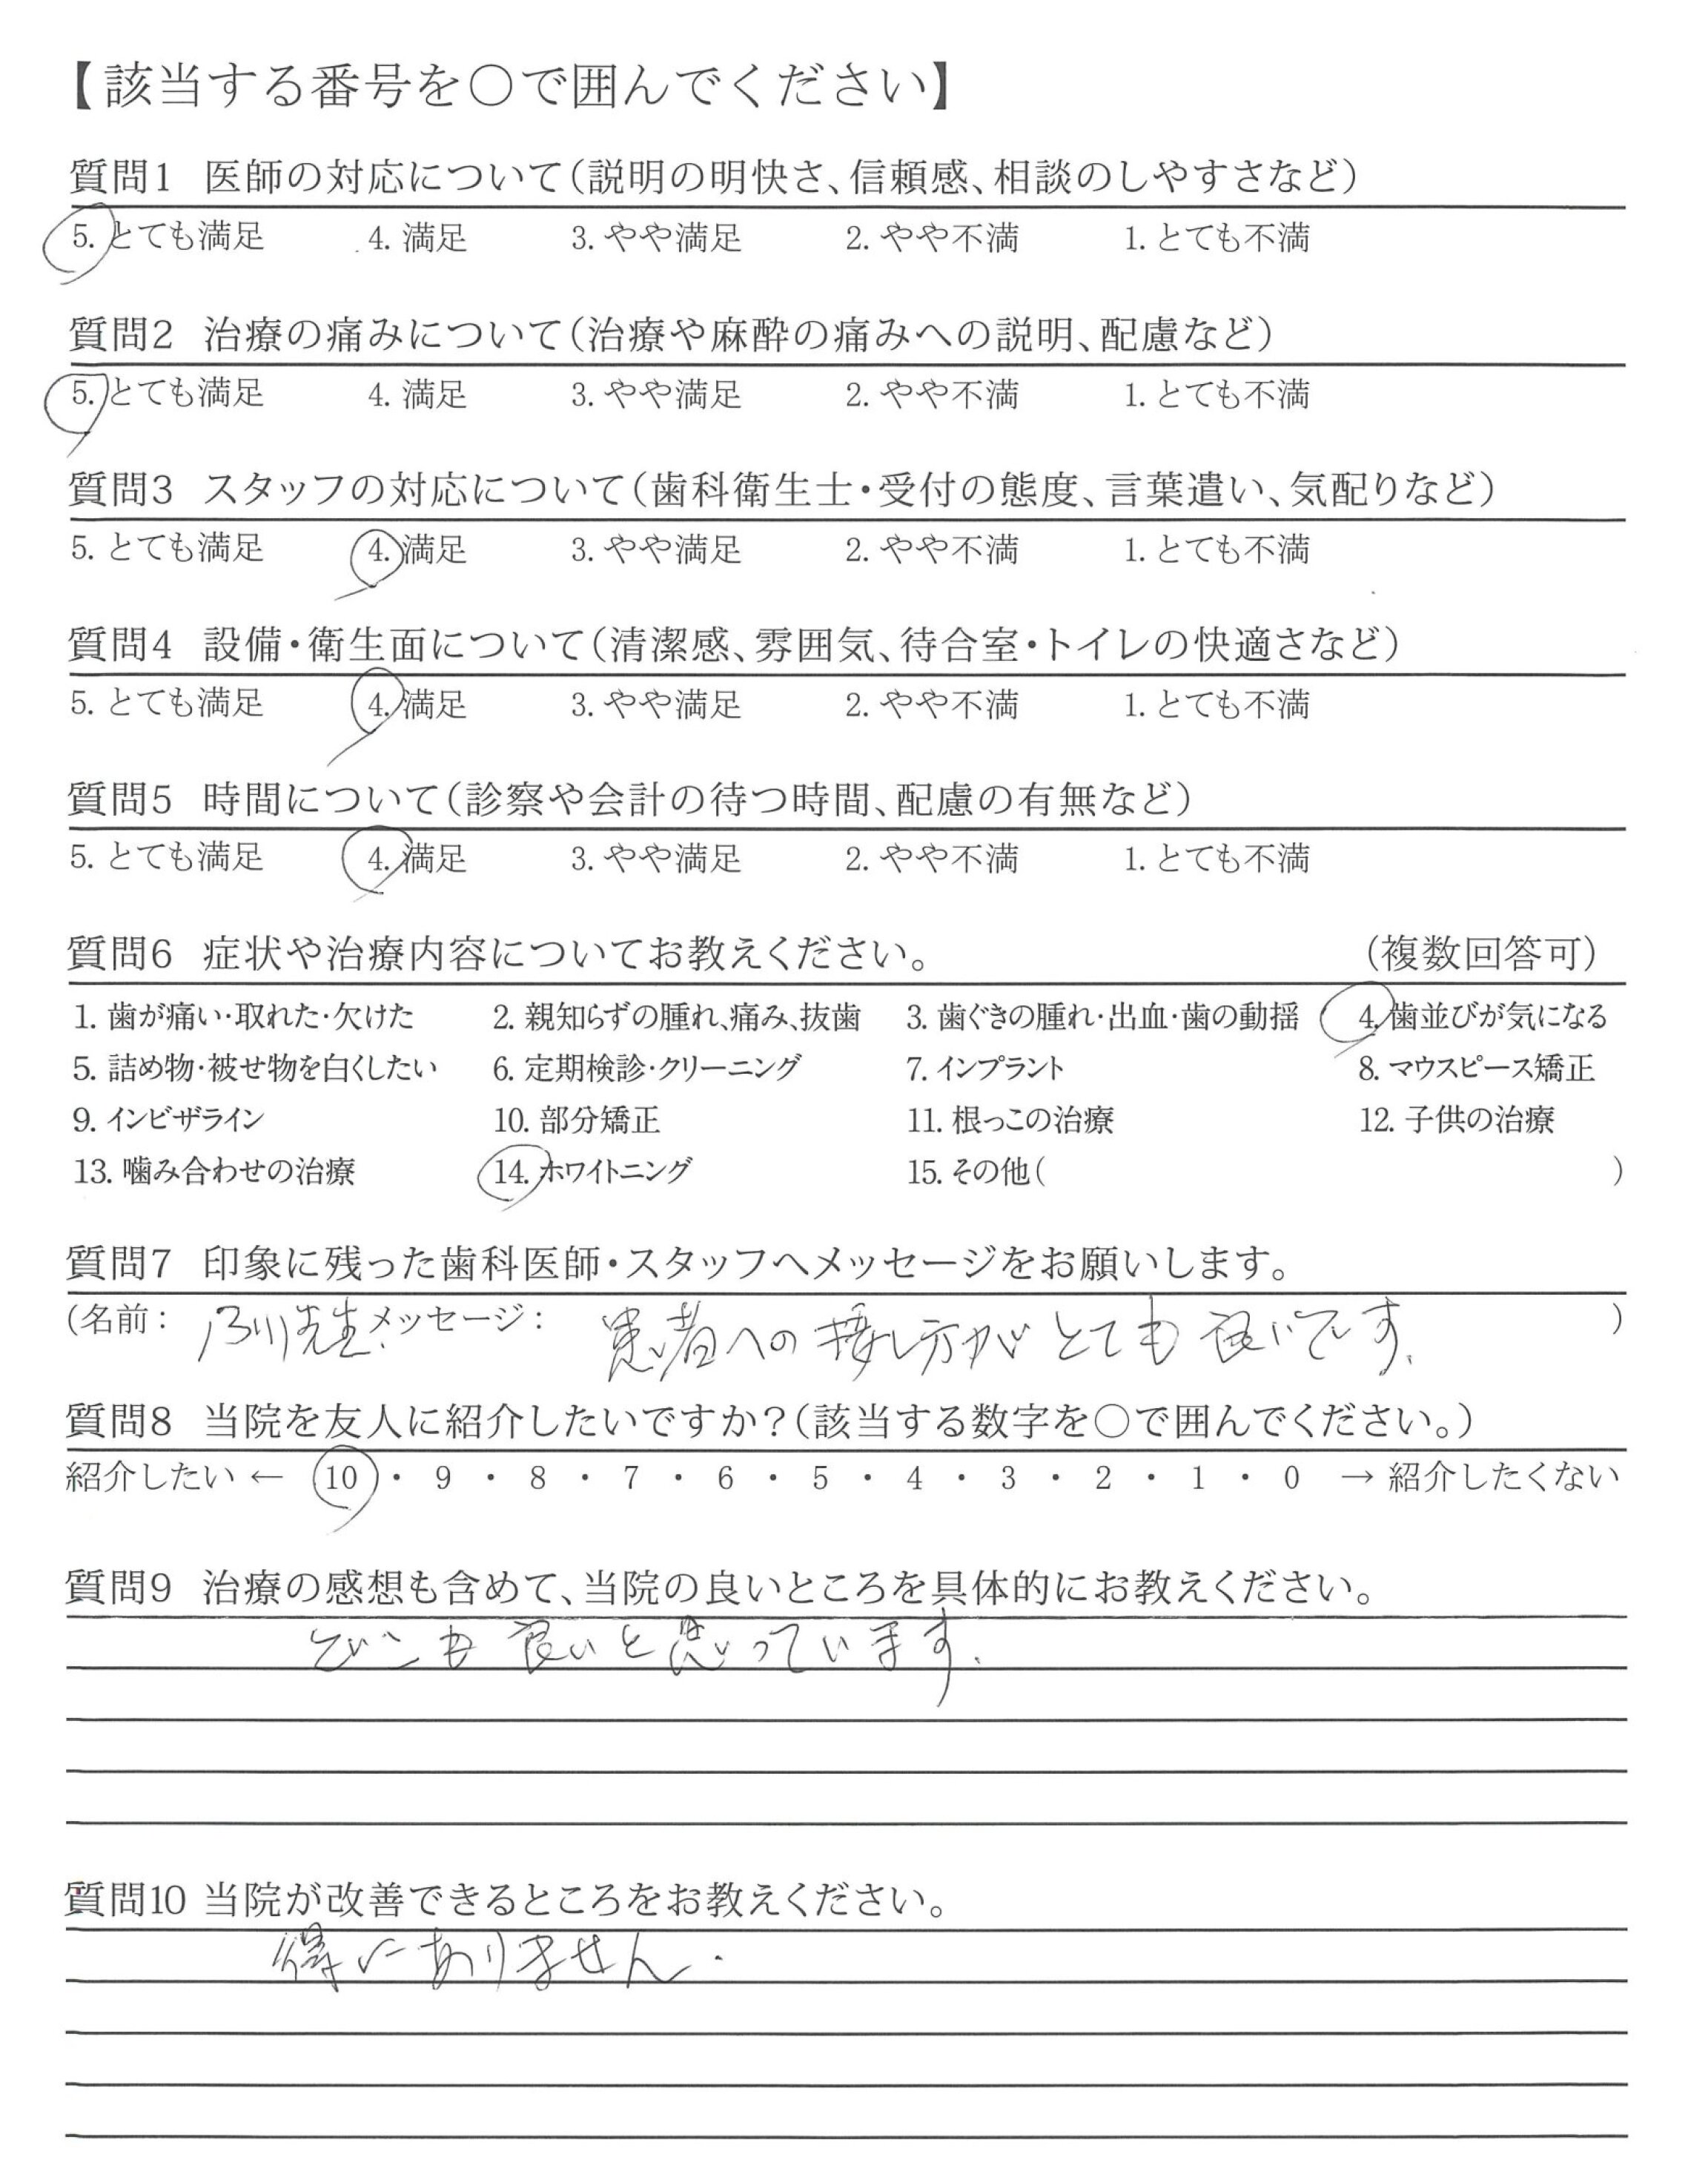 【該当する番号を〇で囲んでください】
質問1 医師の対応について（説明の明快さ、信頼感、相談のしやすさなど）
5. とても満足 4. 満足 3. やや満足 2. やや不満 1. とても不満
質問2 治療の痛みについて（治療や麻酔の痛みへの説明、配慮など）
5. とても満足 4. 満足 3. やや満足 2. やや不満 1. とても不満
質問3 スタッフの対応について（歯科衛生士・受付の態度、言葉遣い、気配りなど）
5. とても満足 4. 満足 3. やや満足 2. やや不満 1. とても不満
質問4 設備・衛生面について（清潔感、雰囲気、待合室・トイレの快適さなど）
5. とても満足 4. 満足 3. やや満足 2. やや不満 1. とても不満
質問5 時間について（診察や会計の待つ時間、配慮の有無など）
5. とても満足 4. 満足 3. やや満足 2. やや不満 1. とても不満
質問6 症状や治療内容についてお教えください。 （複数回答可）
1. 歯が痛い・取れた・欠けた 2. 親知らずの腫れ、痛み、抜歯 3. 歯ぐきの腫れ・出血・歯の動揺 4. 歯並びが気になる
5. 詰め物・被せ物を白くしたい 6. 定期検診・クリーニング 7. インプラント 8. マウスピース矯正
9. インビザライン 10. 部分矯正 11. 根っこの治療 12. 子供の治療
13. 噛み合わせの治療 14. ホワイトニング 15. その他（ ）
質問7 印象に残った歯科医師・スタッフへメッセージをお願いします。
（名前： 先生. メッセージ： 患者への接し方がとても良いです. ）
質問8 当院を友人に紹介したいですか？（該当する数字を〇で囲んでください。）
紹介したい ← 10 ・ 9 ・ 8 ・ 7 ・ 6 ・ 5 ・ 4 ・ 3 ・ 2 ・ 1 ・ 0 → 紹介したくない
質問9 治療の感想も含めて、当院の良いところを具体的にお教えください。
とても良いと思っています.
質問10 当院が改善できるところをお教えください。
特にありません.